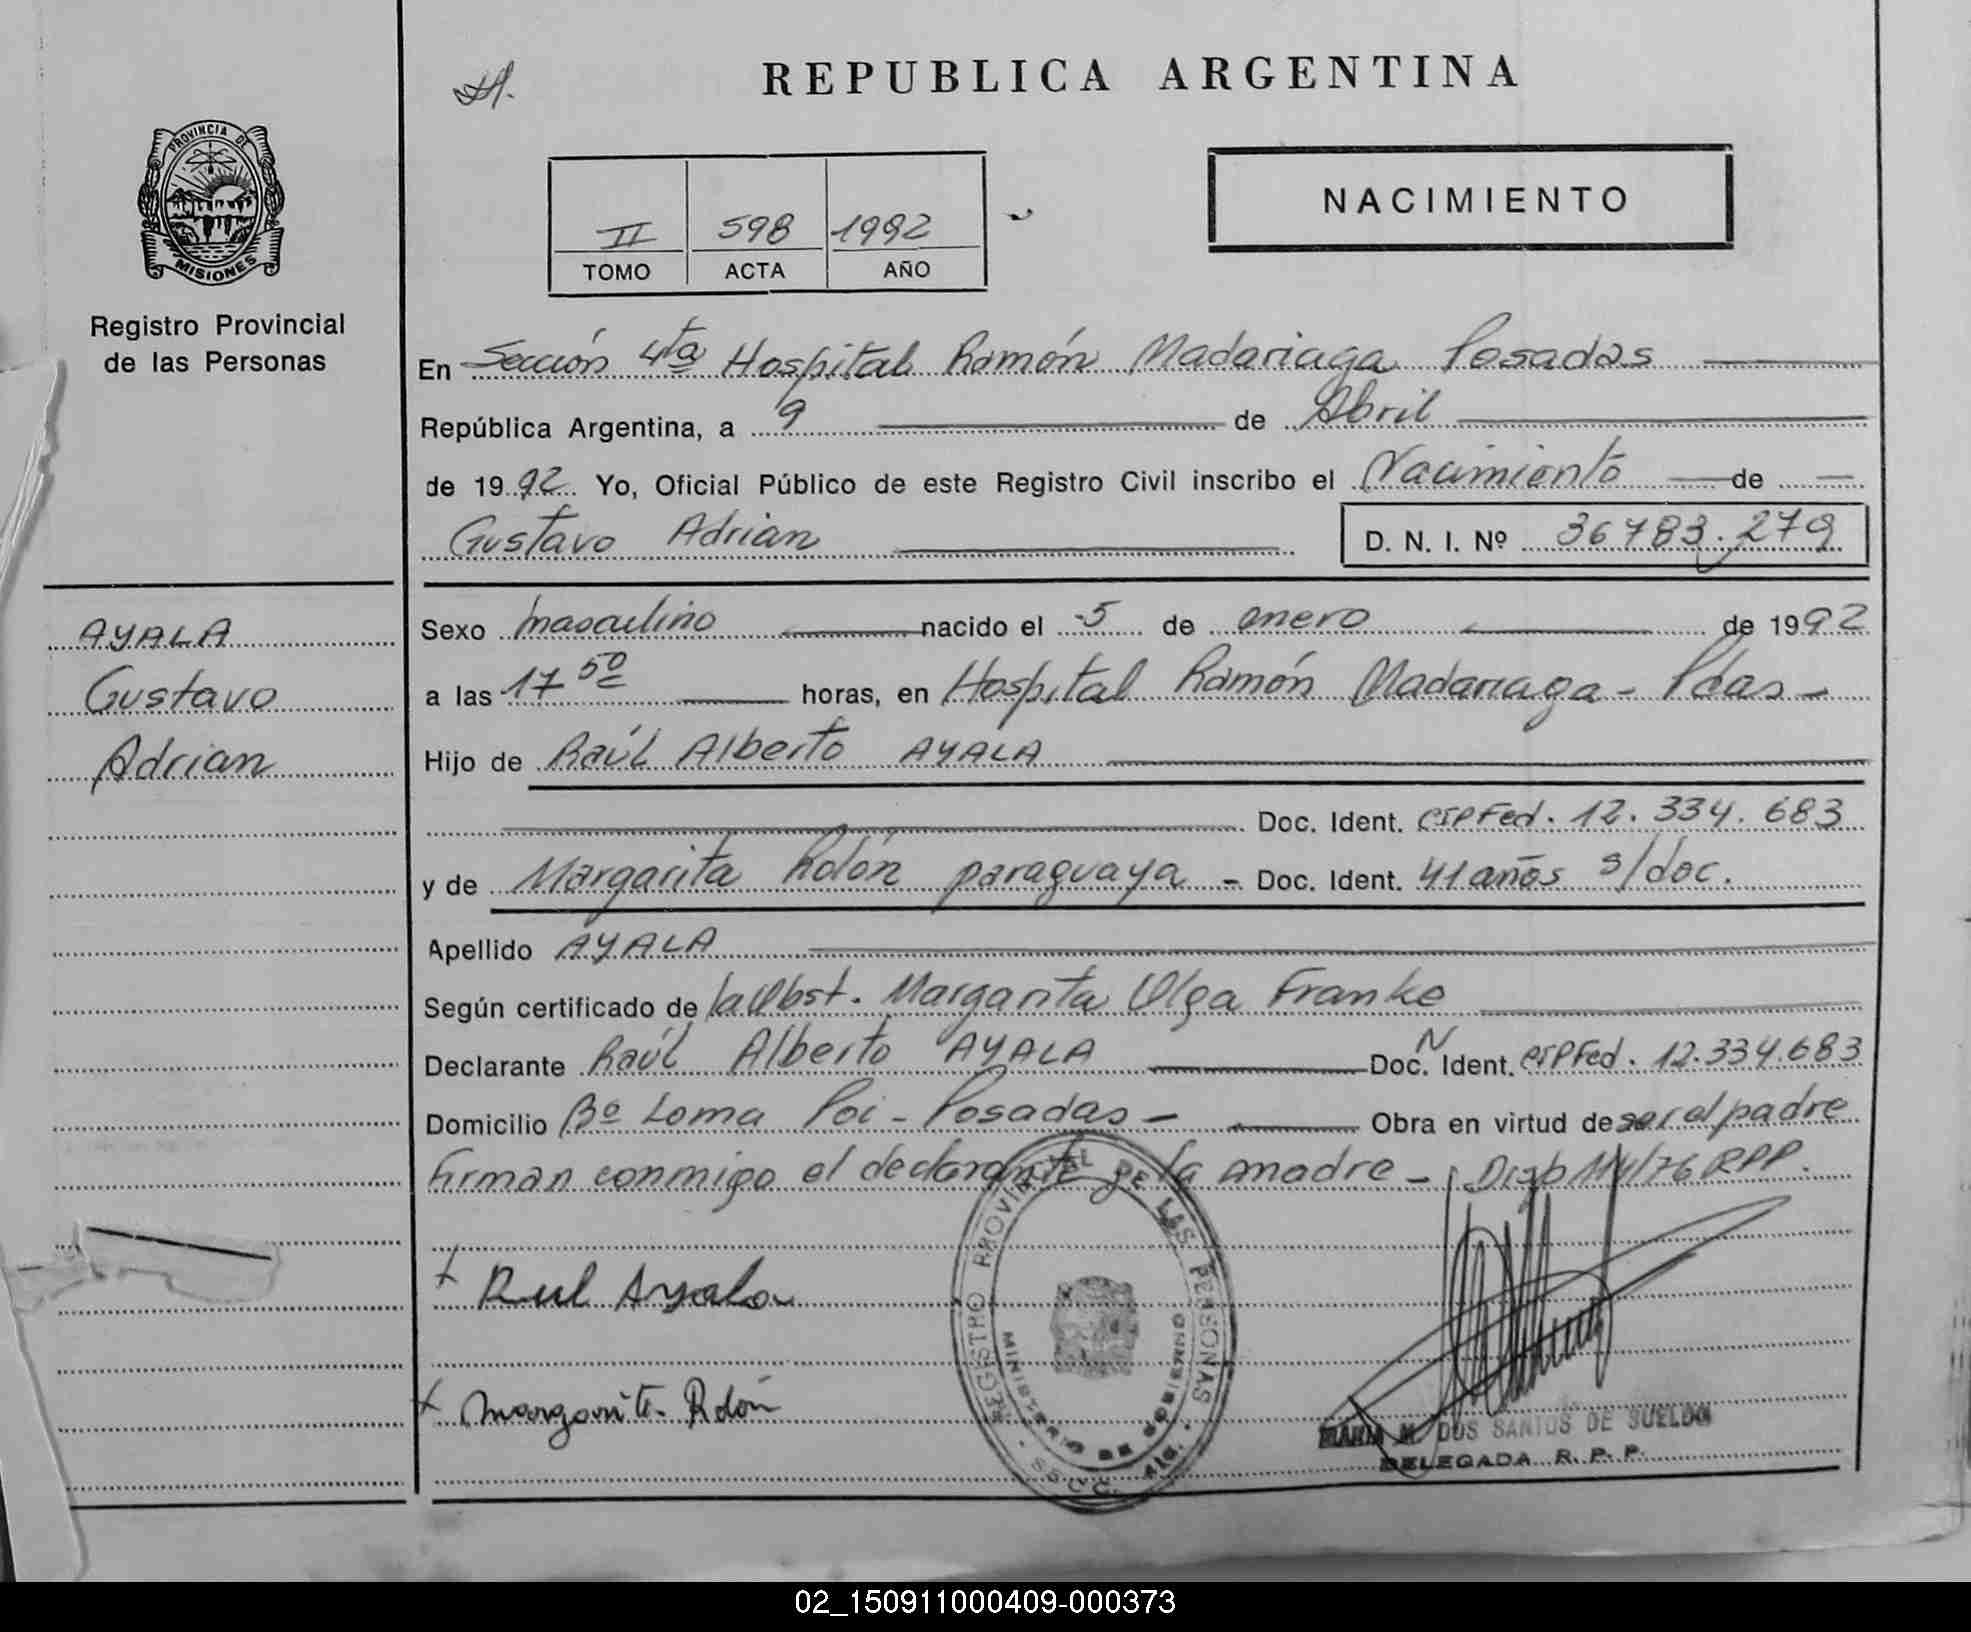 REPUBLICA ARGENTINA
PROVINCIA DE
MISIONES
Registro Provincial
de las Personas
II 598 1992
TOMO ACTA AÑO
NACIMIENTO
En Sección 4ta Hospital Ramón Madariaga Posadas
República Argentina, a 9 de Abril
de 1992 Yo, Oficial Público de este Registro Civil inscribo el Nacimiento de
Gustavo Adrian D. N. I. Nº 36783.279
AYALA
Gustavo
Adrian
Sexo masculino nacido el 5 de enero de 1992
a las 17 50 horas, en Hospital Ramón Madariaga - Pdas -
Hijo de Raúl Alberto AYALA
Doc. Ident. CIPFed. 12.334.683
y de Margarita Rolón paraguaya - Doc. Ident. 41 años s/doc.
Apellido AYALA
Según certificado de la Obst. Margarita Olga Franke
Declarante Raúl Alberto AYALA Doc. N Ident. CIPFed. 12.334.683
Domicilio Bº Loma Poi - Posadas - Obra en virtud de ser el padre
Firman conmigo el declarante y la madre - Disp 114/76 RPP.
+ Rul Ayala
+ Margarita Rolón
REGISTRO PROVINCIAL DE LAS PERSONAS
MINISTERIO DE GOBIERNO
MARIA M. DOS SANTOS DE SUELDO
DELEGADA R. P. P.
02_150911000409-000373